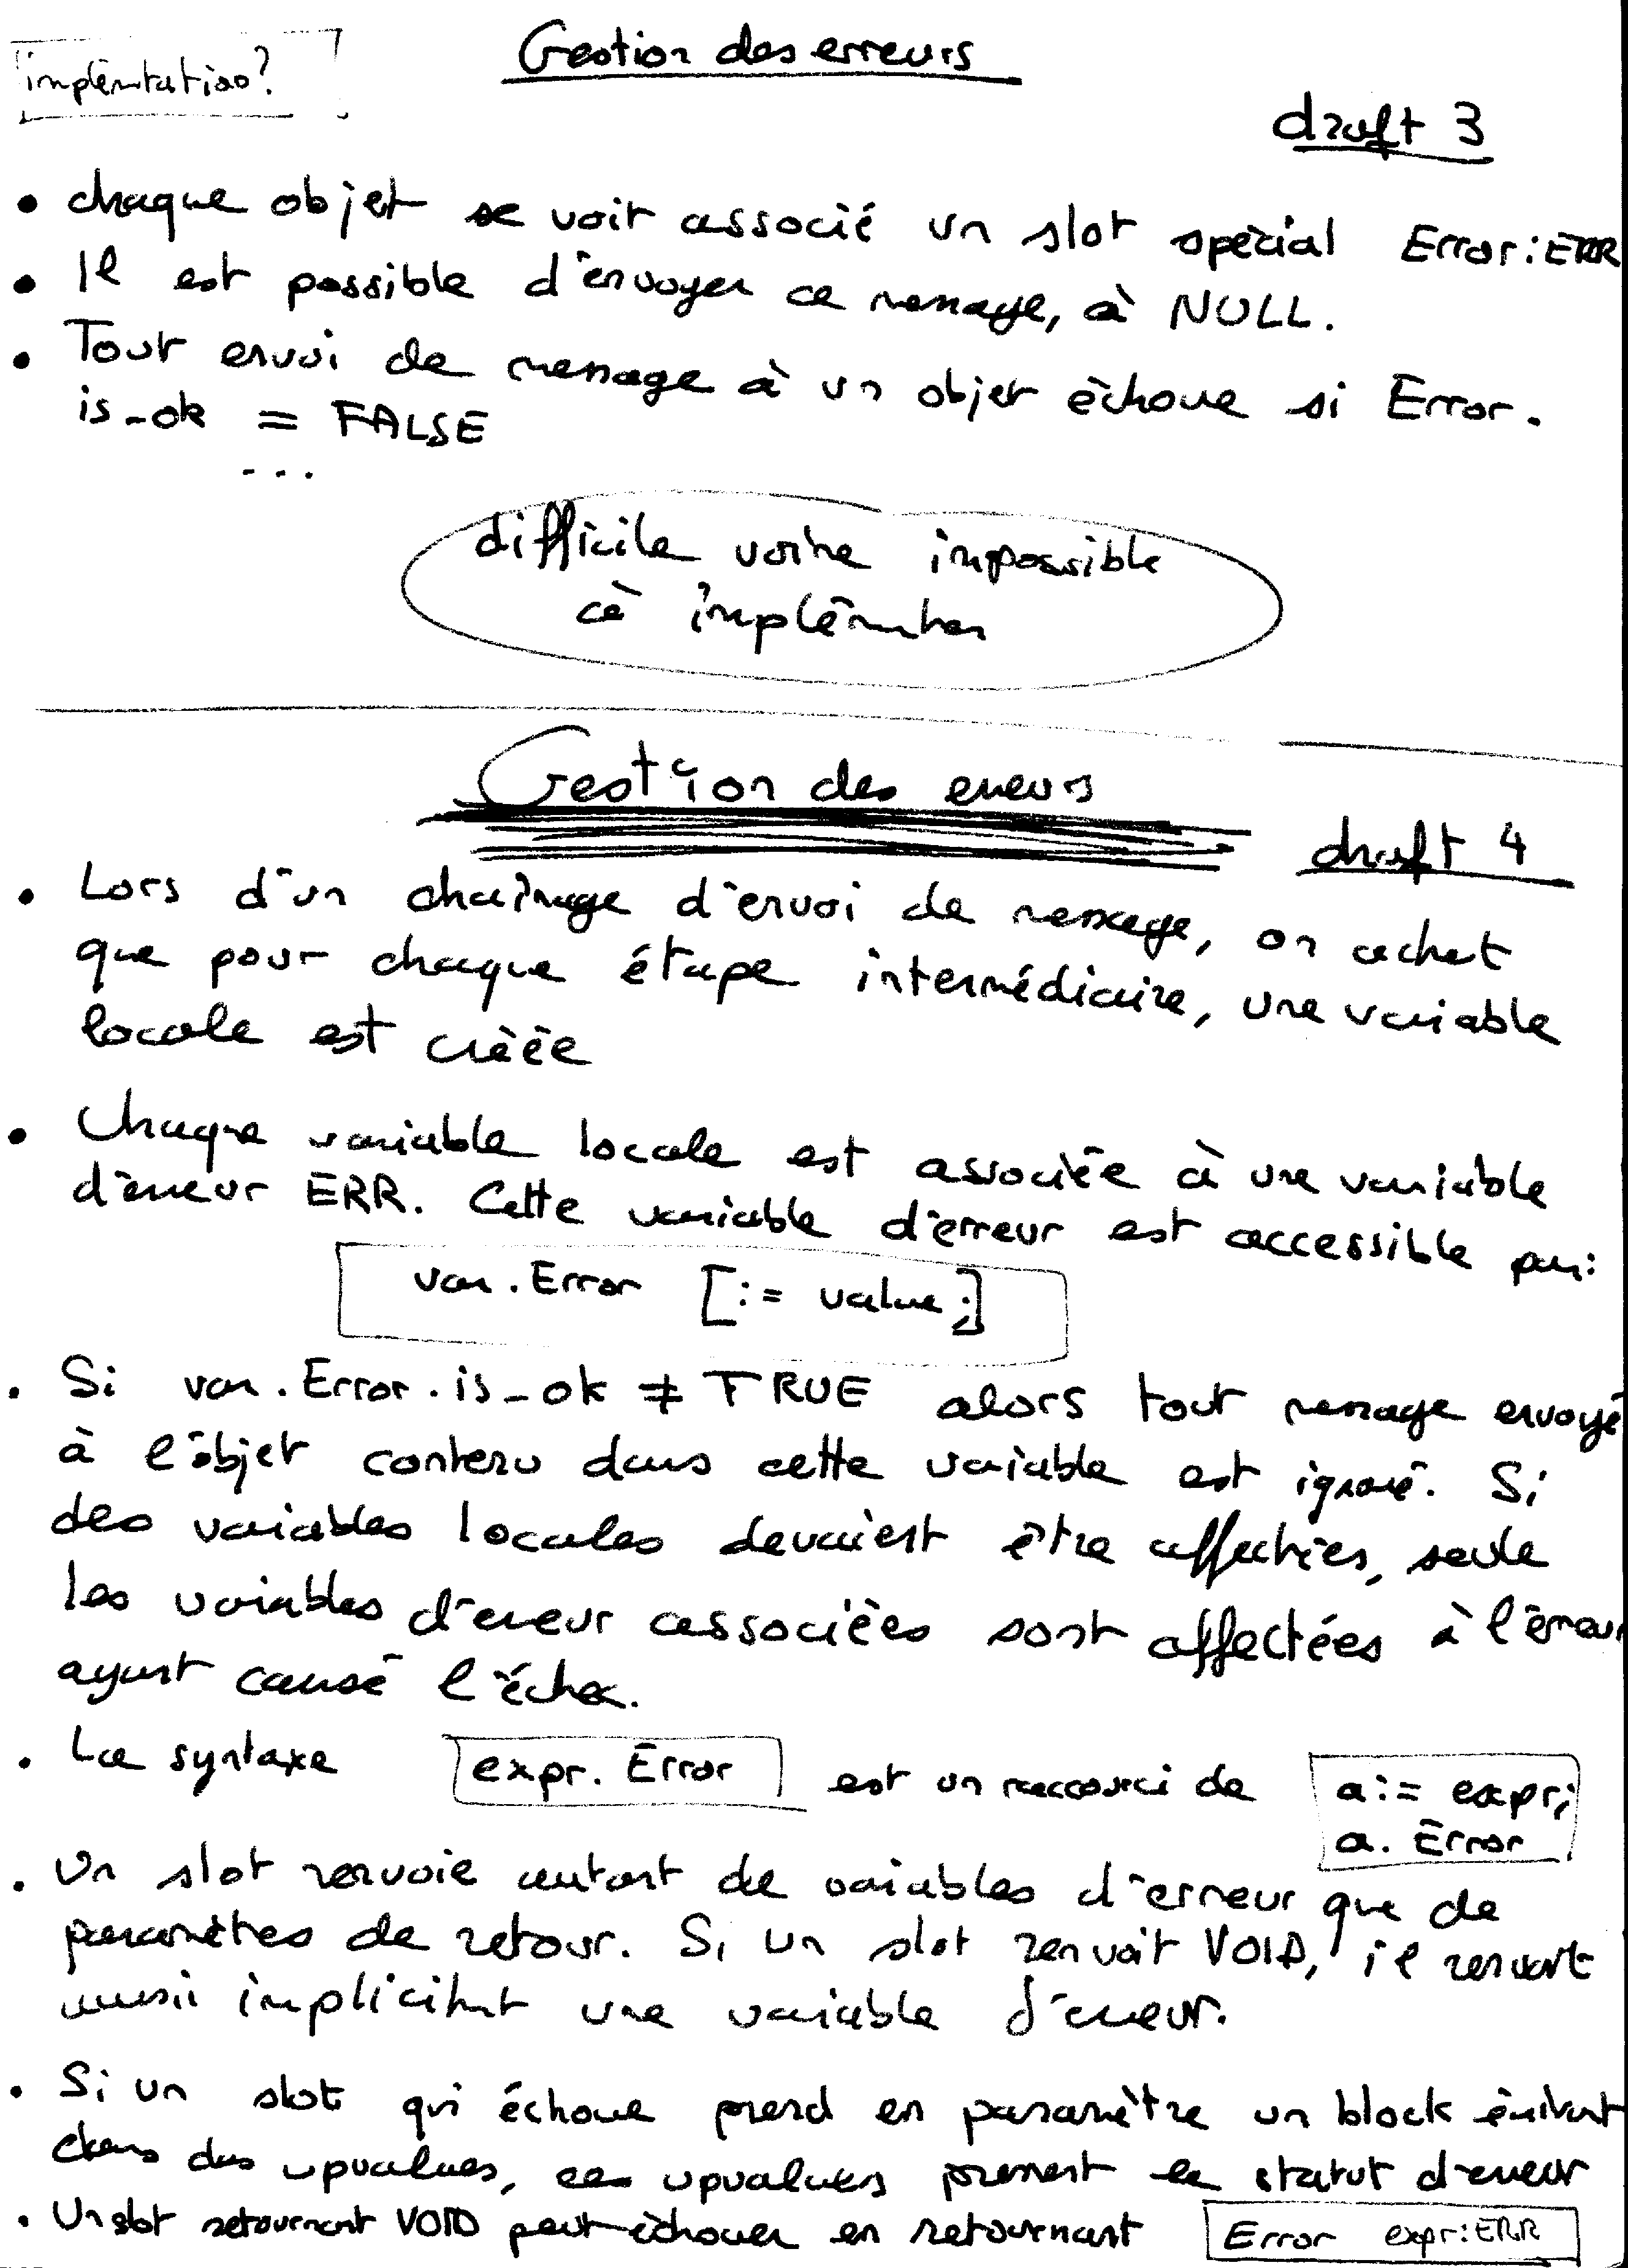 Gestion des erreurs
implémtation?
draft 3
• chaque objet se voit associé un slot spécial Error:ERR
• Il est possible d'envoyer ce message, à NULL.
• Tout envoi de message à un objet échoue si Error.
is_ok = FALSE
...
difficile voire impossible
à implémter
Gestion des erreurs
draft 4
• Lors d'un chaînage d'envoi de message, on
que pour chaque étape intermédiaire, une variable
locale est créée
• Chaque variable locale est associée à une variable
d'erreur ERR. Cette variable d'erreur est accessible par:
var.Error [:= value;]
• Si var.Error.is_ok ≠ TRUE alors tout message envoyé
à l'objet contenu dans cette variable est ignoré. Si
des variables locales devaient être affectées, seule
les variables d'erreur associées sont affectées à l'erreur
ayant causé l'échec.
• La syntaxe expr.Error est un raccourci de a:= expr;
a.Error
• Un slot renvoie autant de variables d'erreur que de
paramètres de retour. Si un slot renvoit VOID, il renvoit
aussi implicitmt une variable d'erreur.
• Si un slot qui échoue prend en paramètre un block écrivant
dans des upvalues, ces upvalues prennent le statut d'erreur
• Un slot retournant VOID peut échouer en retournant Error expr:ERR